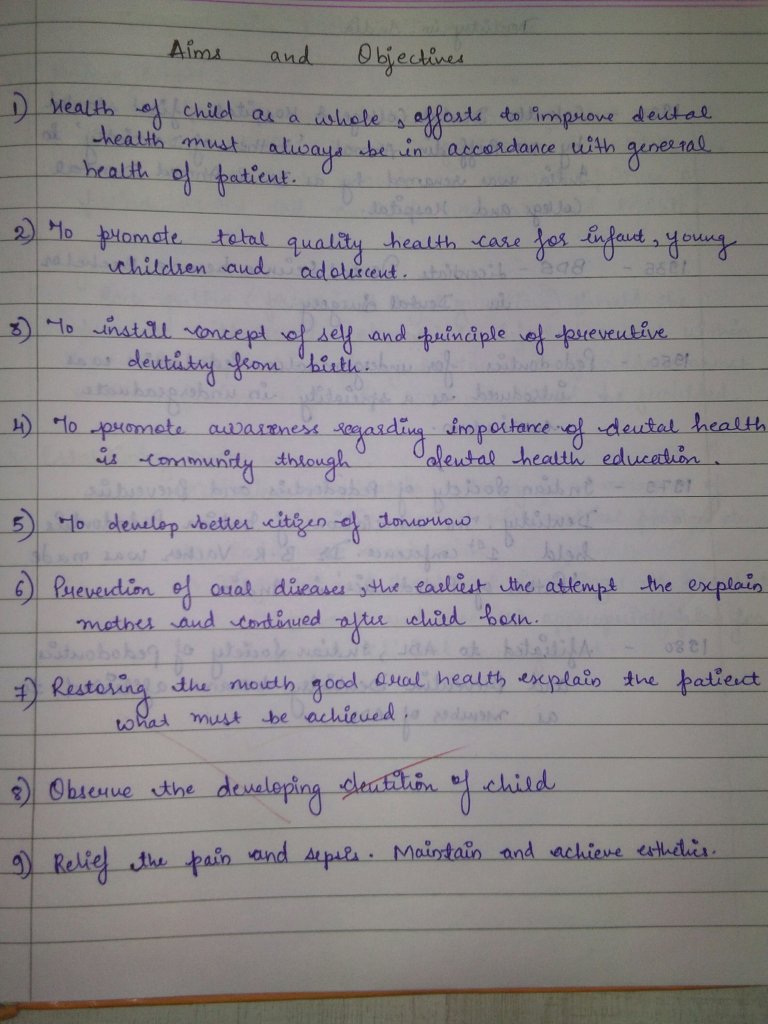 Aims and Objectives
1) Health of child as a whole, efforts to improve dental
health must always be in accordance with general
health of patient.
2) To promote total quality health care for infant, young
children and adolescent.
3) To instill concept of self and principle of preventive
dentistry from birth.
4) To promote awareness regarding importance of dental health
is community through dental health education.
5) To develop better citizen of tomorrow
6) Prevention of oral diseases, the earliest the attempt the explain
mother and continued after child born.
7) Restoring the mouth good oral health explain the patient
what must be achieved.
8) Observe the developing dentition of child
9) Relief the pain and sepsis. Maintain and achieve esthetics.